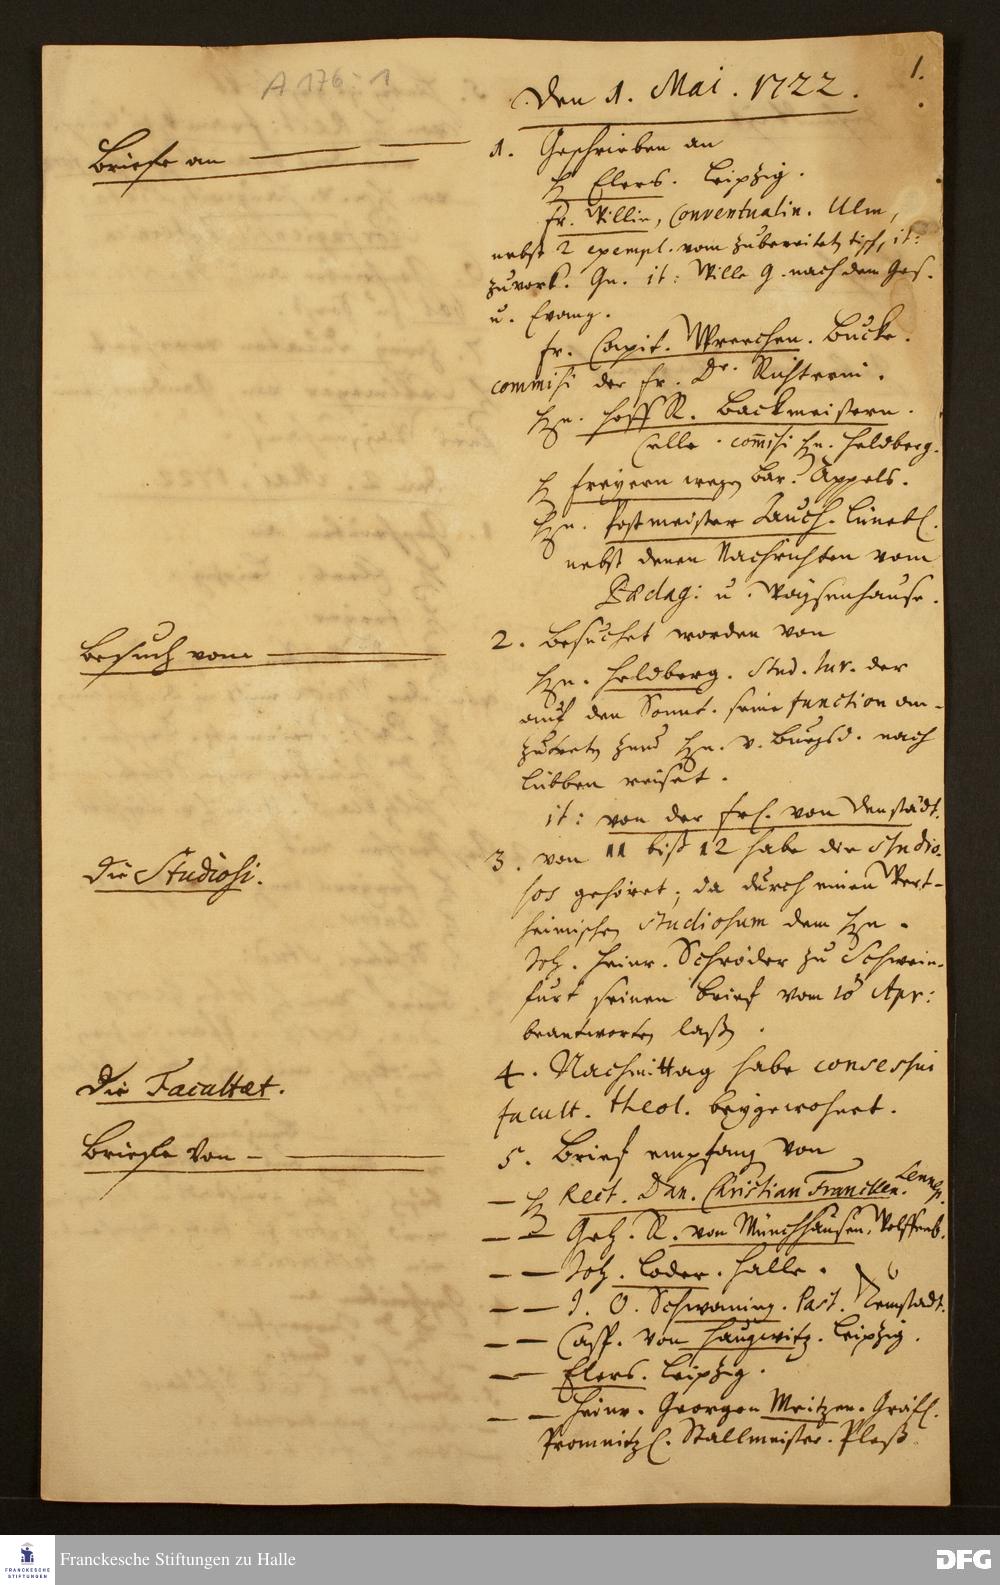 A 176 : 1
1.
Den 1. Mai. 1722.
Briefe an
1. Geschrieben an
H Elers. Leipzig.
Fr. Willin, Conventualin. Ulm,
nebst 2 exempl. vom zubereiteten Tisch, it:
u. Evang.
Fr. Capit. Bücke.
commisi der Fr. Dr. Richterin.
Hn. Hoff R. Backmeistern.
Celle. com̄isi Hn. Heldberg.
H Freyern wegen Bar. Appels.
Hn. Postmeister Lüneb.
nebst denen Nachrichten vom
Pædag: u. Waysenhause.
Besuch vom
2. Besuchet worden von
Hn. Heldberg. Stud. Jur. der
auf den Sonnt. seine function an-
zutreten zum Hn. v. Burgsd. nach
Lübben reiset.
it: von der Frl. von Denstädt.
Die Studiosi.
3. von 11 biß 12 habe die Studio-
sos gehöret, da durch einen Wert-
heimischen Studiosum dem Hn.
Joh. Heinr. Schröder zu Schwein-
furt seinen Brief vom 18 Apr:
beantworten laßen.
Die Facultæt.
4. Nachmittag habe consessui
facult. theol. beygewohnet.
Briefe von
5. Brief empfang von
– H Rect. Dan. Christian Francken. Lennep.
– – Geh. R. von Münchhausen. Wolffenb.
– – Joh. Loder. Halle.
– – J. O. Schwaning. Past. Neustadt.
– – Casp. von Haugwitz. Leipzig.
– – Elers. Leipzig.
– – Heinr. Georgen Meitzen. Gräfl.
Promnitzl. Stallmeister. Pleß
FRANCKESCHE
STIFTUNGEN
Franckesche Stiftungen zu Halle
DFG